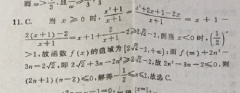 11. C. 当 x≥0 时, \frac{x^2+1}{x+1}=\frac{x^2+2x+1-2x}{x+1}=x+1-
\frac{2(x+1)-2}{x+1}=x+1+\frac{2}{x+1}-2≥2\sqrt{2}-2, 当 x<0 时, (\frac{1}{2})^x
>1, 故函数 f(x) 的值域为 [2\sqrt{2}-2,+∞); 而 f(m)+2n^2-
3n=2\sqrt{2}, 即 2\sqrt{2}+3n-2n^2≥2\sqrt{2}-2, 故 2n^2-3n-2≤0, 则
(2n+1)(n-2)≤0, 解得-\frac{1}{2}≤n≤2, 故选 C.